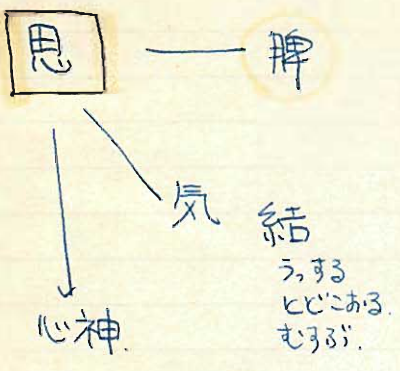 思 脾
気 結
うっする
とどこおる.
むすぶ.
心神.